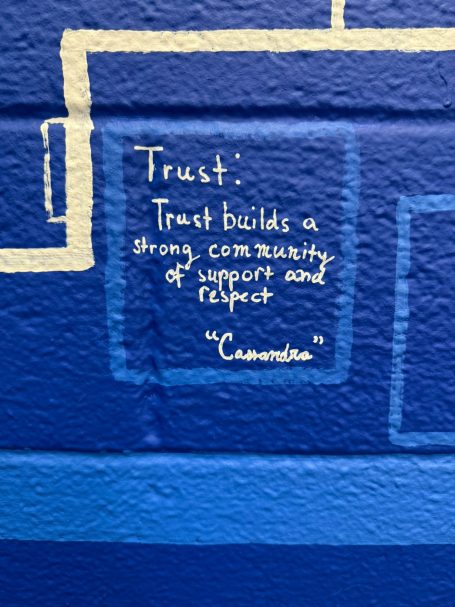 Trust:
Trust builds a
strong community
of support and
respect
"Cassandra"